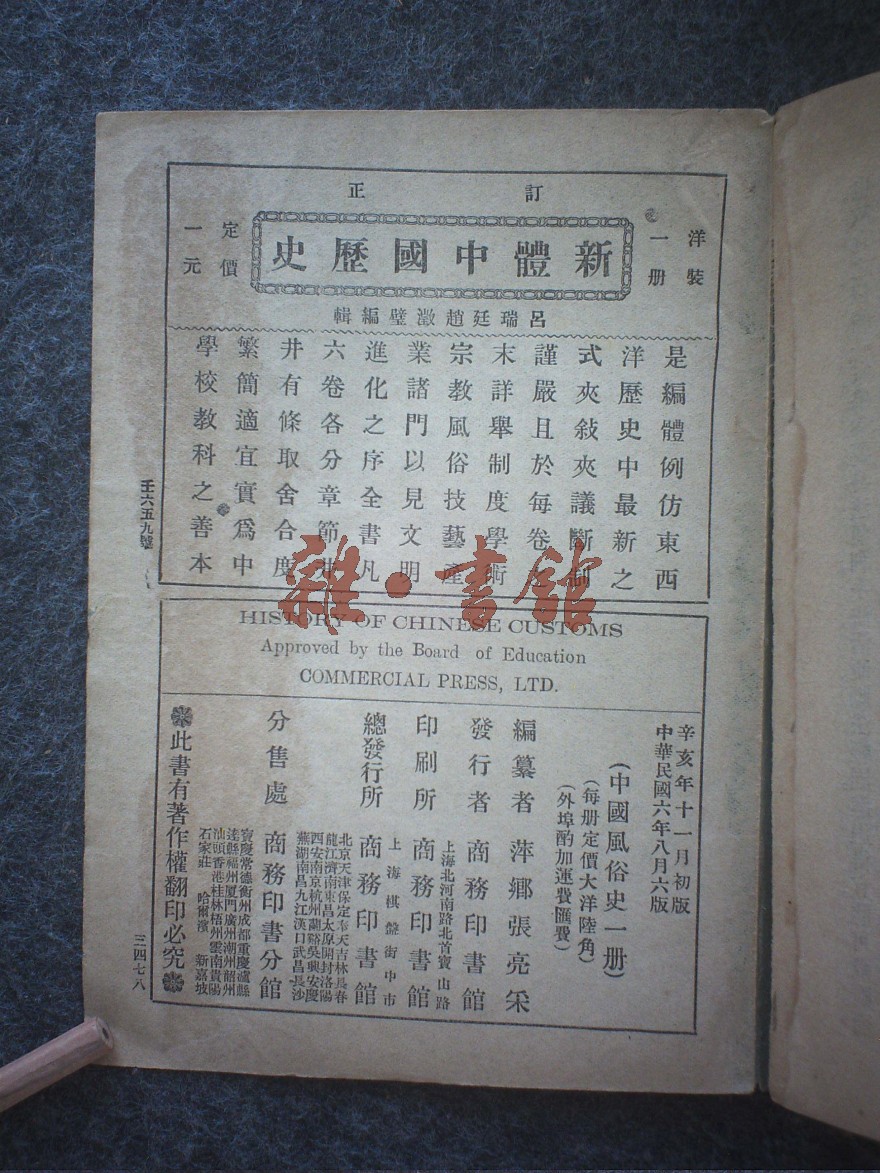 訂正
洋裝一册
新體中國歷史
定價一元
呂瑞廷趙澂璧編輯
是編體例仿東西
洋歷史中最新之
式夾敍夾議斷制
謹嚴且於每卷之
末詳舉制度學術
宗教風俗技藝產
業諸門以見文明
進化之序全書凡
六卷各分章節井
井有條取舍合度
繁簡適宜實爲中
學校教科之善本
壬六五九號
雜·書館
HISTORY OF CHINESE CUSTOMS
Approved by the Board of Education
COMMERCIAL PRESS, LTD.
辛亥年十一月初版
中華民國六年八月六版
(中國風俗史一册)
(每册定價大洋陸角)
(外埠酌加運費匯費)
編纂者 萍鄉張亮采
發行者 商務印書館
上海北河南路北首寶山路
印刷所 商務印書館
上海棋盤街中市
總發行所 商務印書館
北京天津保定奉天吉林長春
龍江濟南東昌太原開封洛陽
西安南京杭州蘭谿吳興安慶
蕪湖南昌九江漢口武昌長沙
分售處 商務印書分館
寶慶常德衡州成都重慶瀘縣
達縣福州厦門廣州潮州韶州
汕頭香港桂林梧州雲南貴陽
石家莊 哈爾濱 新嘉坡
此書有著作權翻印必究
三四七八